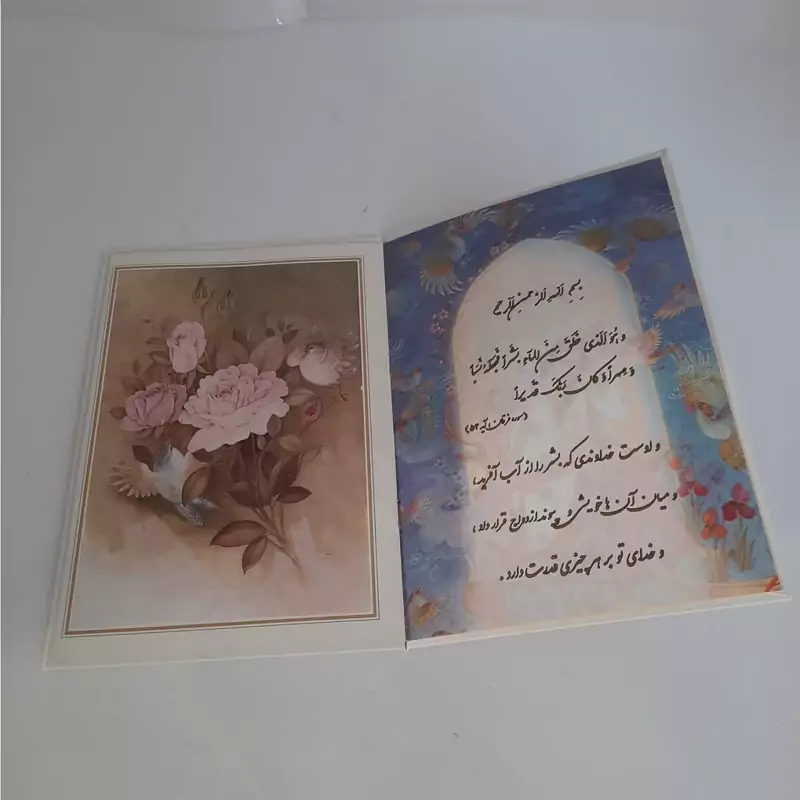 بِسمِ اللهِ الرَّحمنِ الرَّحیمِ
وَ هُوَ الَّذی خَلَقَ مِنَ الماءِ بَشَراً فَجَعَلَهُ نَسَباً
وَ صِهراً وَ کانَ رَبُّکَ قَدیراً
(سوره فرقان، آیه ۵۴)
و اوست خداوندی که بشر را از آب آفرید،
و میان آن ها خویشی و پیوند ازدواج قرار داد،
و خدای تو بر هر چیزی قدرت دارد.